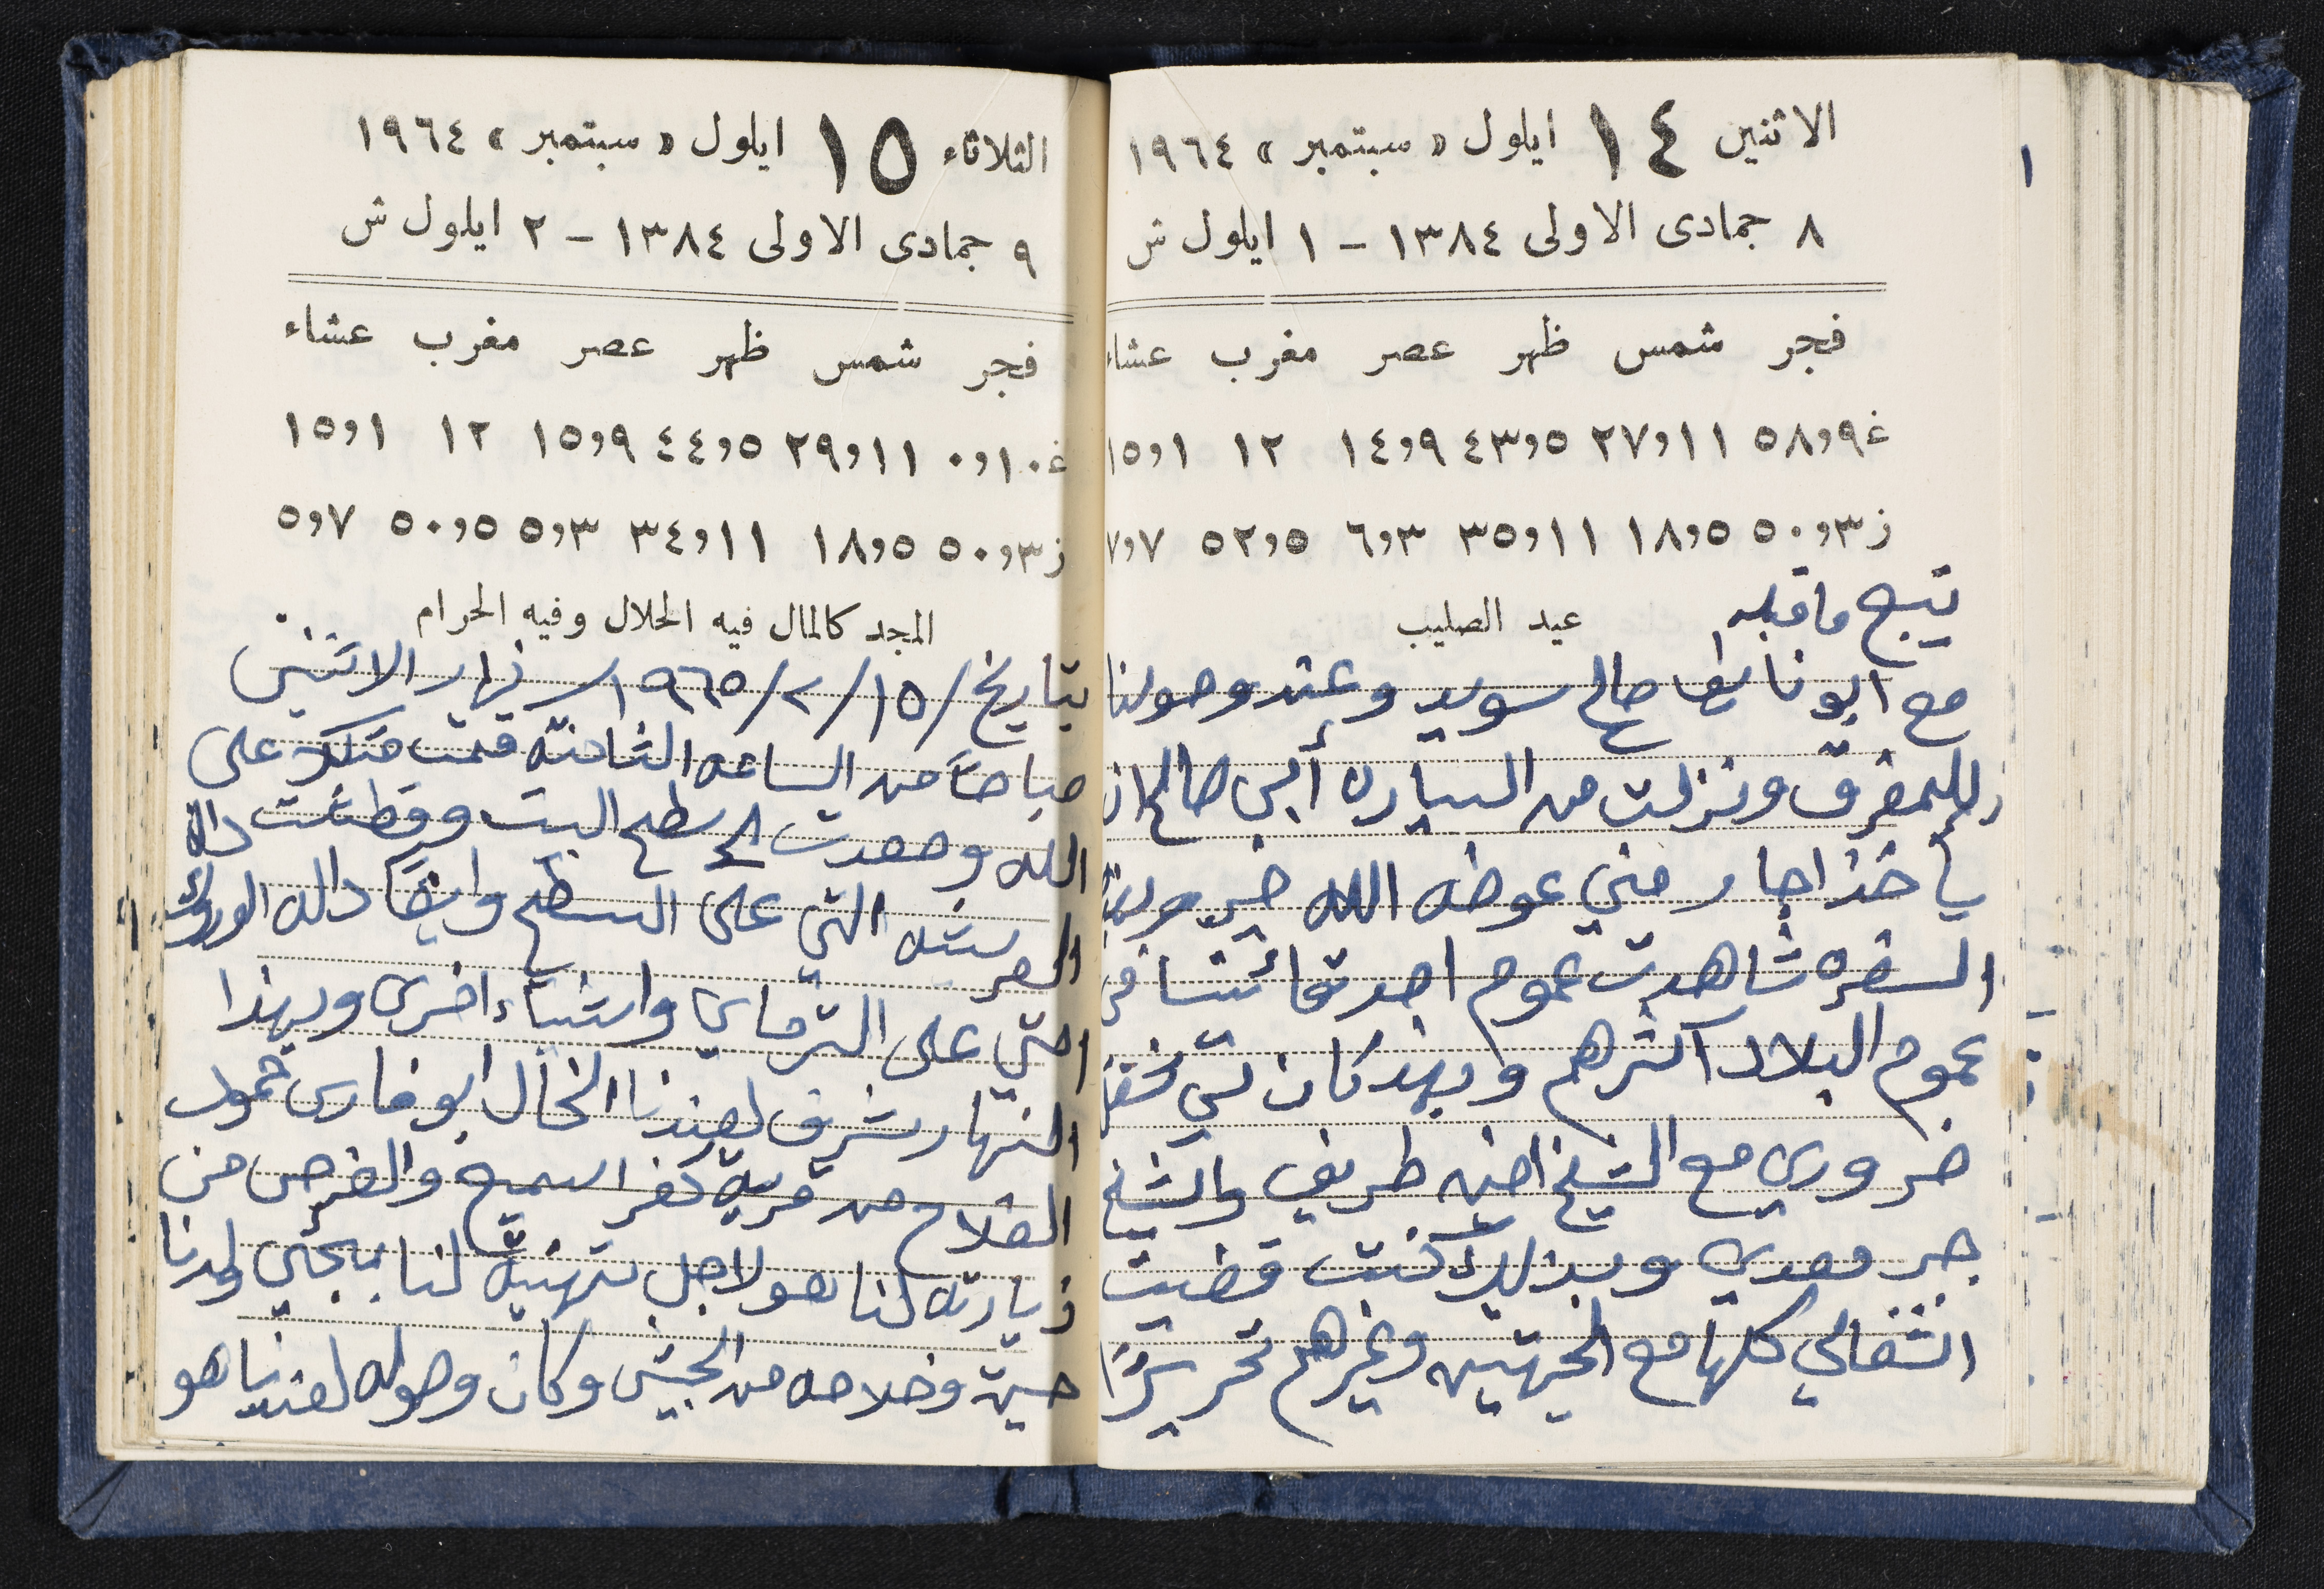 ١
الاثنين ١٤ ايلول «سبتمبر» ١٩٦٤
٨ جمادى الاولى ١٣٨٤ – ١ ايلول ش
فجر شمس ظهر عصر مغرب عشاء
غ ٥٨٫٩ ٢٧٫١١ ٤٣٫٥ ١٤٫٩ ١٢ ١٥٫١
ز ٥٠٫٣ ١٨٫٥ ٣٥٫١١ ٦٫٣ ٥٢٫٥ ٧٫٧
عيد الصليب
يتبع ما قبله
مع ابو نايف صالح سويد وعند وصولنا
للمفرق ونزلت من السياره أبى صالح ان
يأخذ اجار مني عوضه الله خير وبهذه
السفره شاهدت عموم اصدقائنا في
عموم البلاد اكثرهم وبهذ كان لي شغل
ضروري مع الشيخ امين طريف والشيخ
جبر معدي وبذلك كنت قضيت
اشغالي كلها مع الجهتين وغيرهم تحريرًا
الثلاثاء ١٥ ايلول «سبتمبر» ١٩٦٤
٩ جمادى الاولى ١٣٨٤ – ٢ ايلول ش
فجر شمس ظهر عصر مغرب عشاء
غ ٠٫١٠ ٢٩٫١١ ٤٤٫٥ ١٥٫٩ ١٢ ١٥٫١
ز ٥٠٫٣ ١٨٫٥ ٣٤٫١١ ٥٫٣ ٥٠٫٥ ٥٫٧
المجد كالمال فيه الحلال وفيه الحرام
بتاريخ ١٥/٢/١٩٦٥ نهار الاثنين
صباحًا من الساعه الثامنه قمت متكل على
الله وصعدت الى سطح البيت وقطعت دالة
العريشه التي على السطح وايضًا داله
التي على الترماي واشياء اخرى وبهذا
النهار شرف لعندنا الخال ابو فارس حمود
الفلاح من قرية كفر اسميع والغرض من
زيارته لنا هو لاجل تهنيئة لنا بمجيئ ولدنا
حسين وخلاصه من الجيش وكان وصوله لعندنا هو